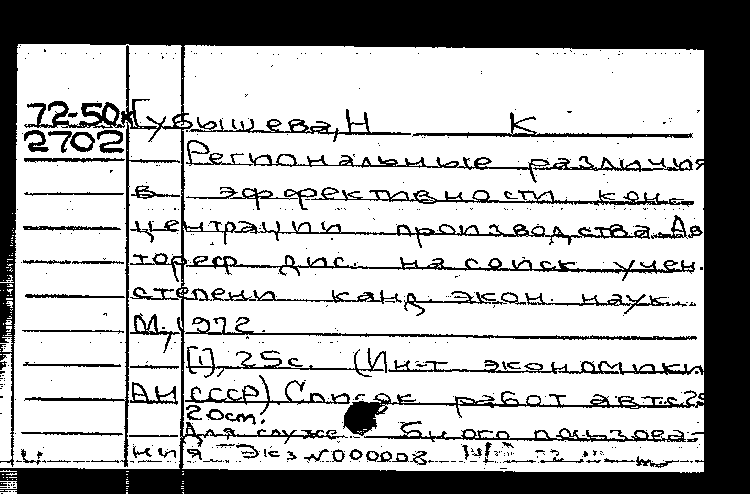 72-50к Губышева, Н К
2702
Региональные различия
в эффективности кон-
центрации производства. Ав
тореф. дис. на соиск учен.
степени канд. экон. наук.
М., 1972.
[1], 25с. (Ин-т экономики
АН СССР) Список работ авт. с 25
20 ст.
Для служебного пользова-
ния Экз N000008